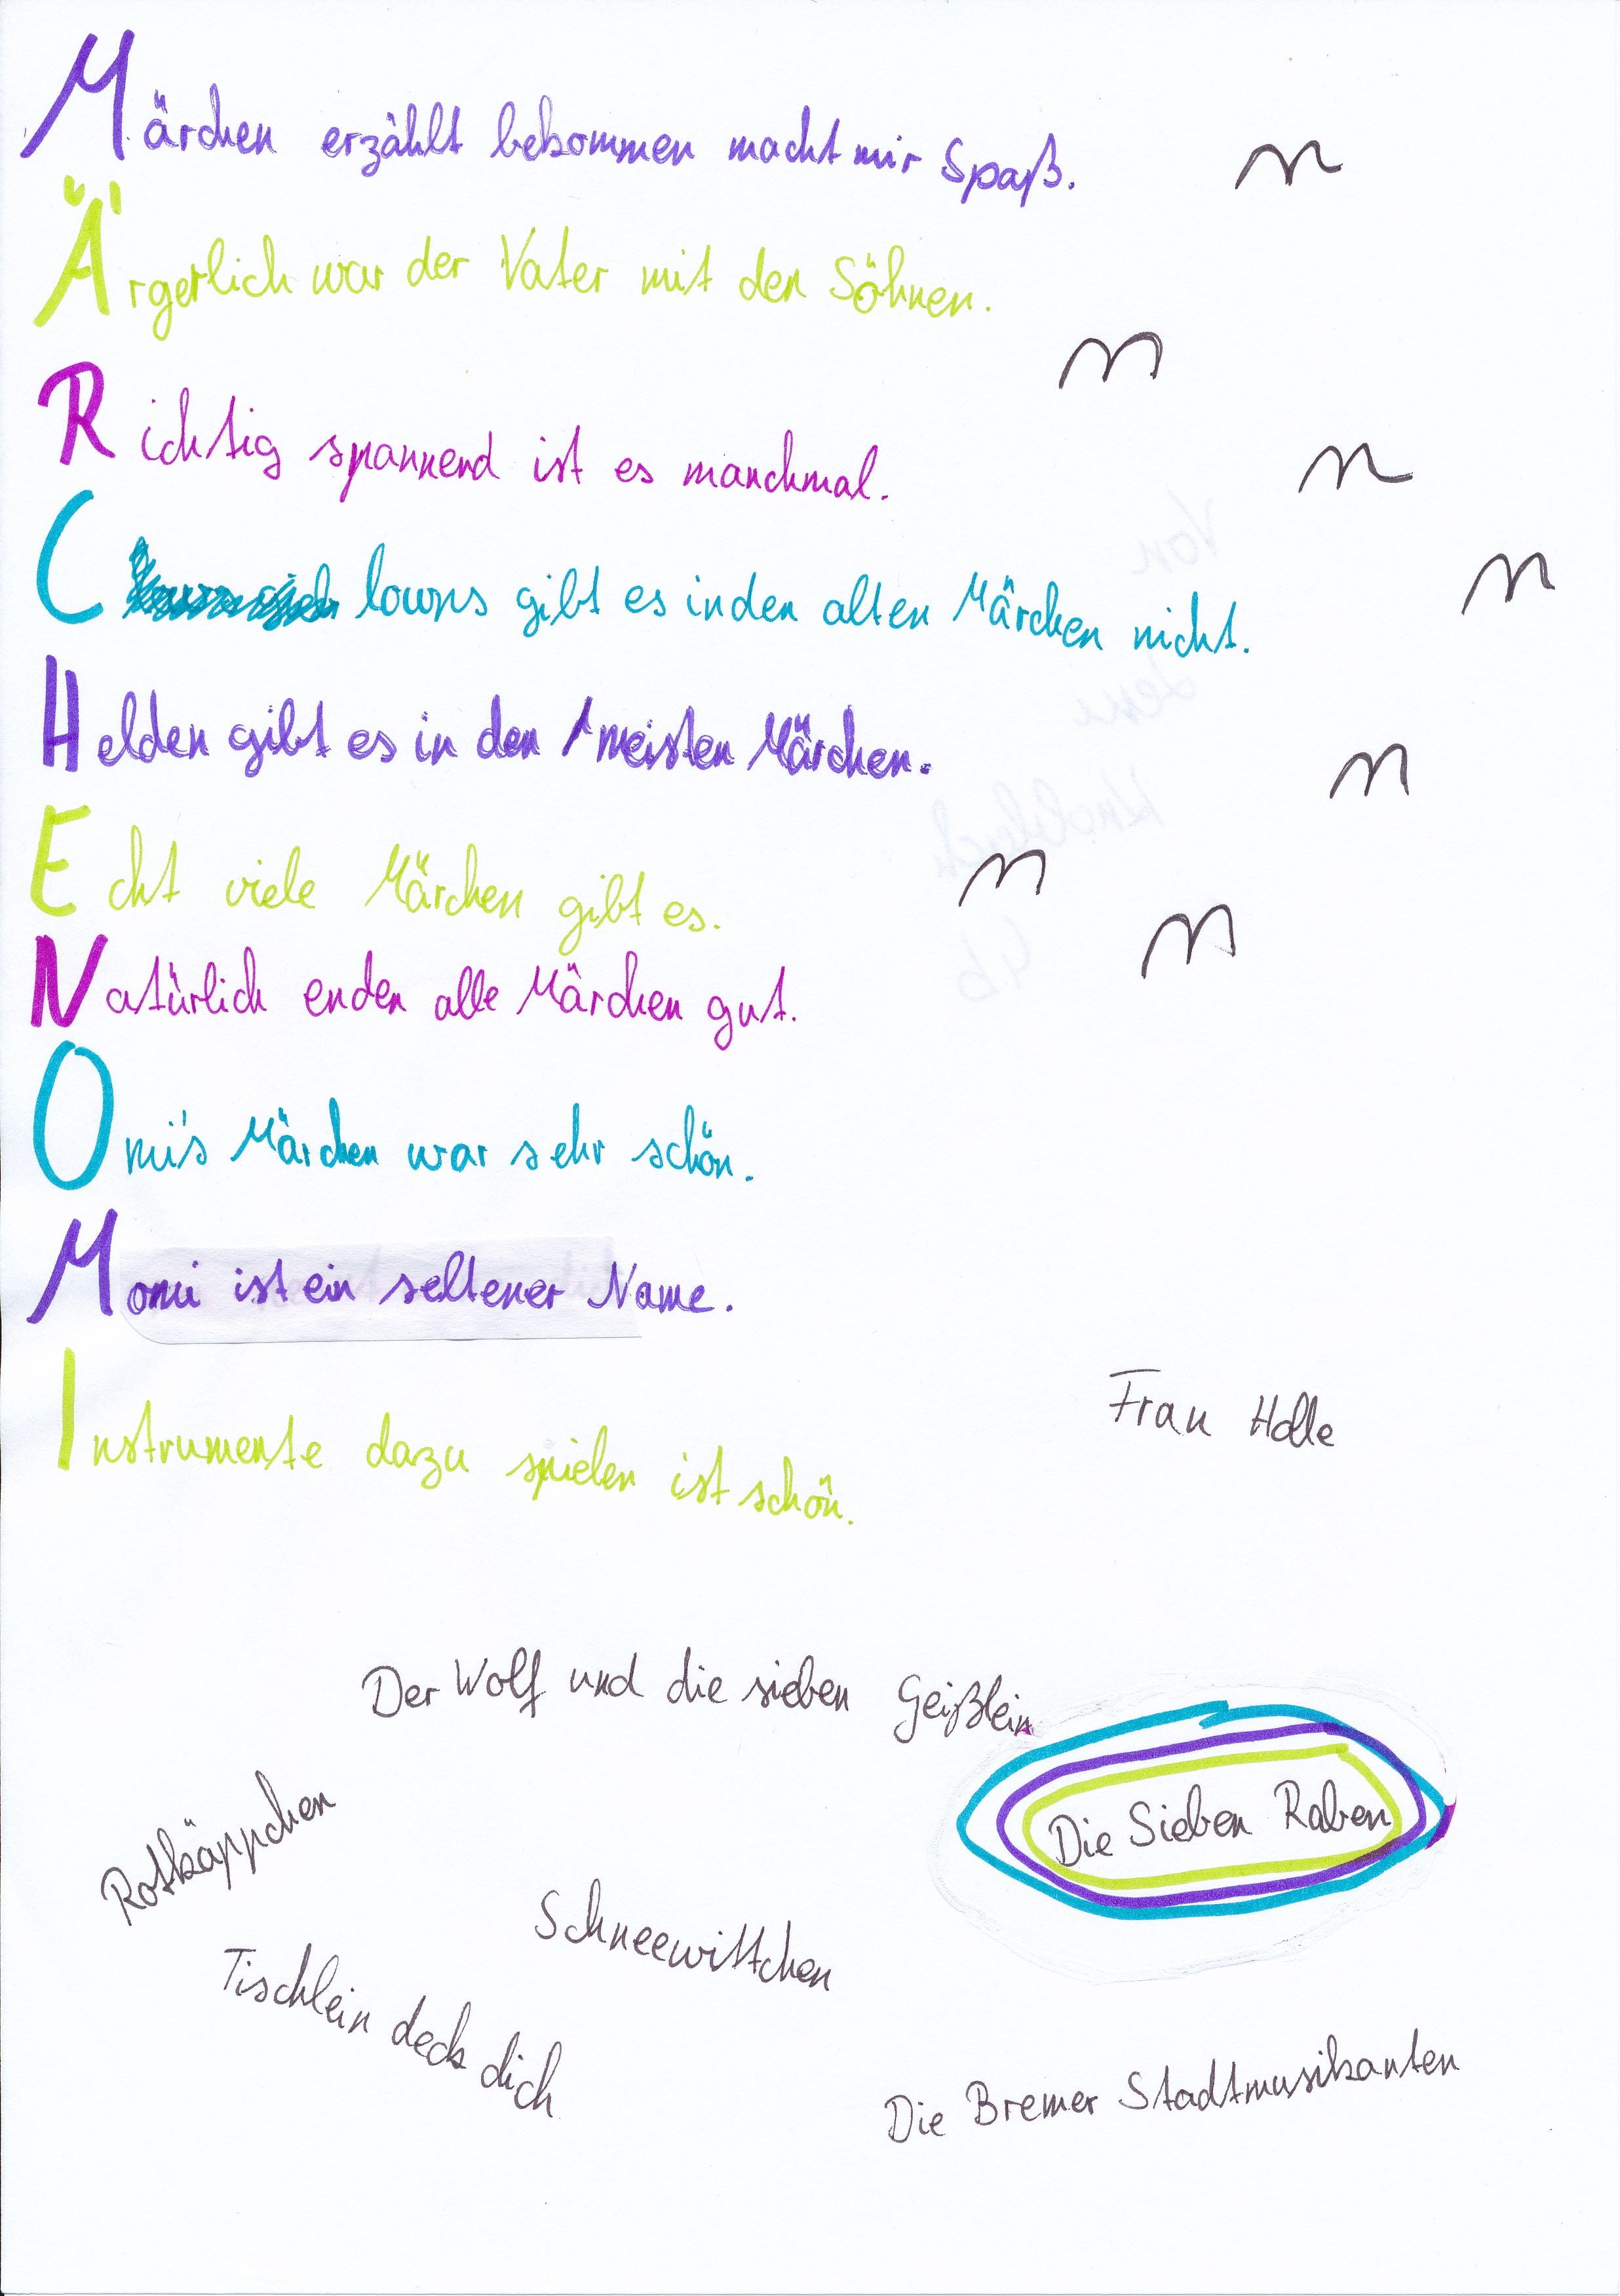 Märchen erzählt bekommen macht mir Spaß.
Ärgerlich war der Vater mit den Söhnen.
Richtig spannend ist es manchmal.
Clowns gibt es in den alten Märchen nicht.
Helden gibt es in den meisten Märchen.
Echt viele Märchen gibt es.
Natürlich enden alle Märchen gut.
Omi's Märchen war sehr schön.
Momi ist ein seltener Name.
Instrumente dazu spielen ist schön.
Frau Holle
Der Wolf und die sieben Geißlein
Die Sieben Raben
Rotkäppchen
Schneewittchen
Tischlein deck dich
Die Bremer Stadtmusikanten
Von
4b